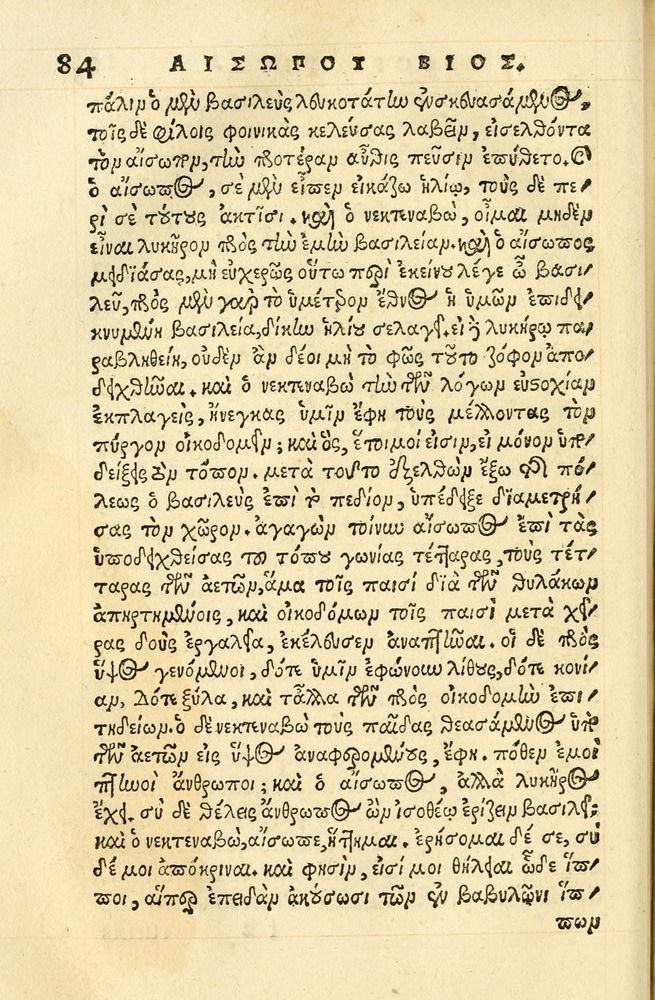 84 ΑΙΣΩΠΟΥ ΒΙΟΣ.
πάλιν ὁ μὲν βασιλεὺς λευκοτάτην ἐνσκευασάμενος,
τοῖς δὲ φίλοις φοινικᾶς κελεύσας λαβεῖν, εἰσελθόντα
τὸν αἴσωπον, τὴν προτέραν αὖθις πεῦσιν ἐπύθετο. καὶ
ὁ αἴσωπος, σὲ μὲν εἶπεν εἰκάζω ἡλίῳ, τοὺς δὲ πε/
ρί σε τούτους ἀκτῖσι. καὶ ὁ νεκτεναβὼ, οἶμαι μηδὲν
εἶναι λυκῆρον πρὸς τὴν ἐμὴν βασιλείαν. καὶ ὁ αἴσωπος
μειδιάσας, μὴ εὐχερῶς οὕτω περὶ ἐκείνου λέγε ὦ βασι/
λεῦ, πρὸς μὲν γὰρ τὸ ὑμέτερον ἔθνος ἡ ὑμῶν ἐπιδει/
κνυμένη βασιλεία, δίκην ἡλίου σελαγεῖ. εἰ δὲ λυκήρῳ πα/
ραβληθείη, οὐδὲν ἂν δέοι μὴ τὸ φῶς τοῦτο ζόφον ἀπο/
δειχθῆναι. καὶ ὁ νεκτεναβὼ τὴν τῶν λόγων εὐστοχίαν
ἐκπλαγεὶς, ἤνεγκας ἡμῖν ἔφη τοὺς μέλλοντας τὸν
πύργον οἰκοδομεῖν; καὶ ὃς, ἕτοιμοί εἰσιν, εἰ μόνον ὑπο/
δείξεις τὸν τόπον. μετὰ τοῦτο ἐξελθὼν ἔξω τῆς πό/
λεως ὁ βασιλεὺς ἐπὶ τὸ πεδίον, ὑπέδειξε διαμετρή/
σας τὸν χῶρον. ἀγαγὼν τοίνυν αἴσωπος ἐπὶ τὰς
ὑποδειχθείσας τοῦ τόπου γωνίας τέτταρας, τοὺς τέτ/
ταρας τῶν ἀετῶν, ἅμα τοῖς παισὶ διὰ τῶν θυλάκων
ἀπηρτημένοις, καὶ οἰκοδόμων τοῖς παισὶ μετὰ χεῖ/
ρας δοὺς ἐργαλεῖα, ἐκέλευσεν ἀναπτῆναι. οἱ δὲ πρὸς
ὕψος γενόμενοι, δότε ἡμῖν ἐφώνουν λίθους, δότε κονί/
αν, δότε ξύλα, καὶ τἄλλα τῶν πρὸς οἰκοδομὴν ἐπι/
τηδείων. ὁ δὲ νεκτεναβὼ τοὺς παῖδας θεασάμενος ὑπὸ
τῶν ἀετῶν εἰς ὕψος ἀναφερομένους, ἔφη. πόθεν ἐμοὶ
πτηνοὶ ἄνθρωποι; καὶ ὁ αἴσωπος, ἀλλὰ λυκῆρος
ἔχει. σὺ δὲ θέλεις ἄνθρωπος ὢν ἰσοθέῳ ἐρίζειν βασιλεῖ;
καὶ ὁ νεκτεναβὼ, αἴσωπε, ἥττημαι. ἐρήσομαι δέ σε, σὺ
δέ μοι ἀπόκριναι. καὶ φησὶν, εἰσί μοι θήλειαι ὧδε ἵπ/
ποι, αἵπερ ἐπειδὰν ἀκούσωσι τῶν ἐν βαβυλῶνι ἵπ/
πων